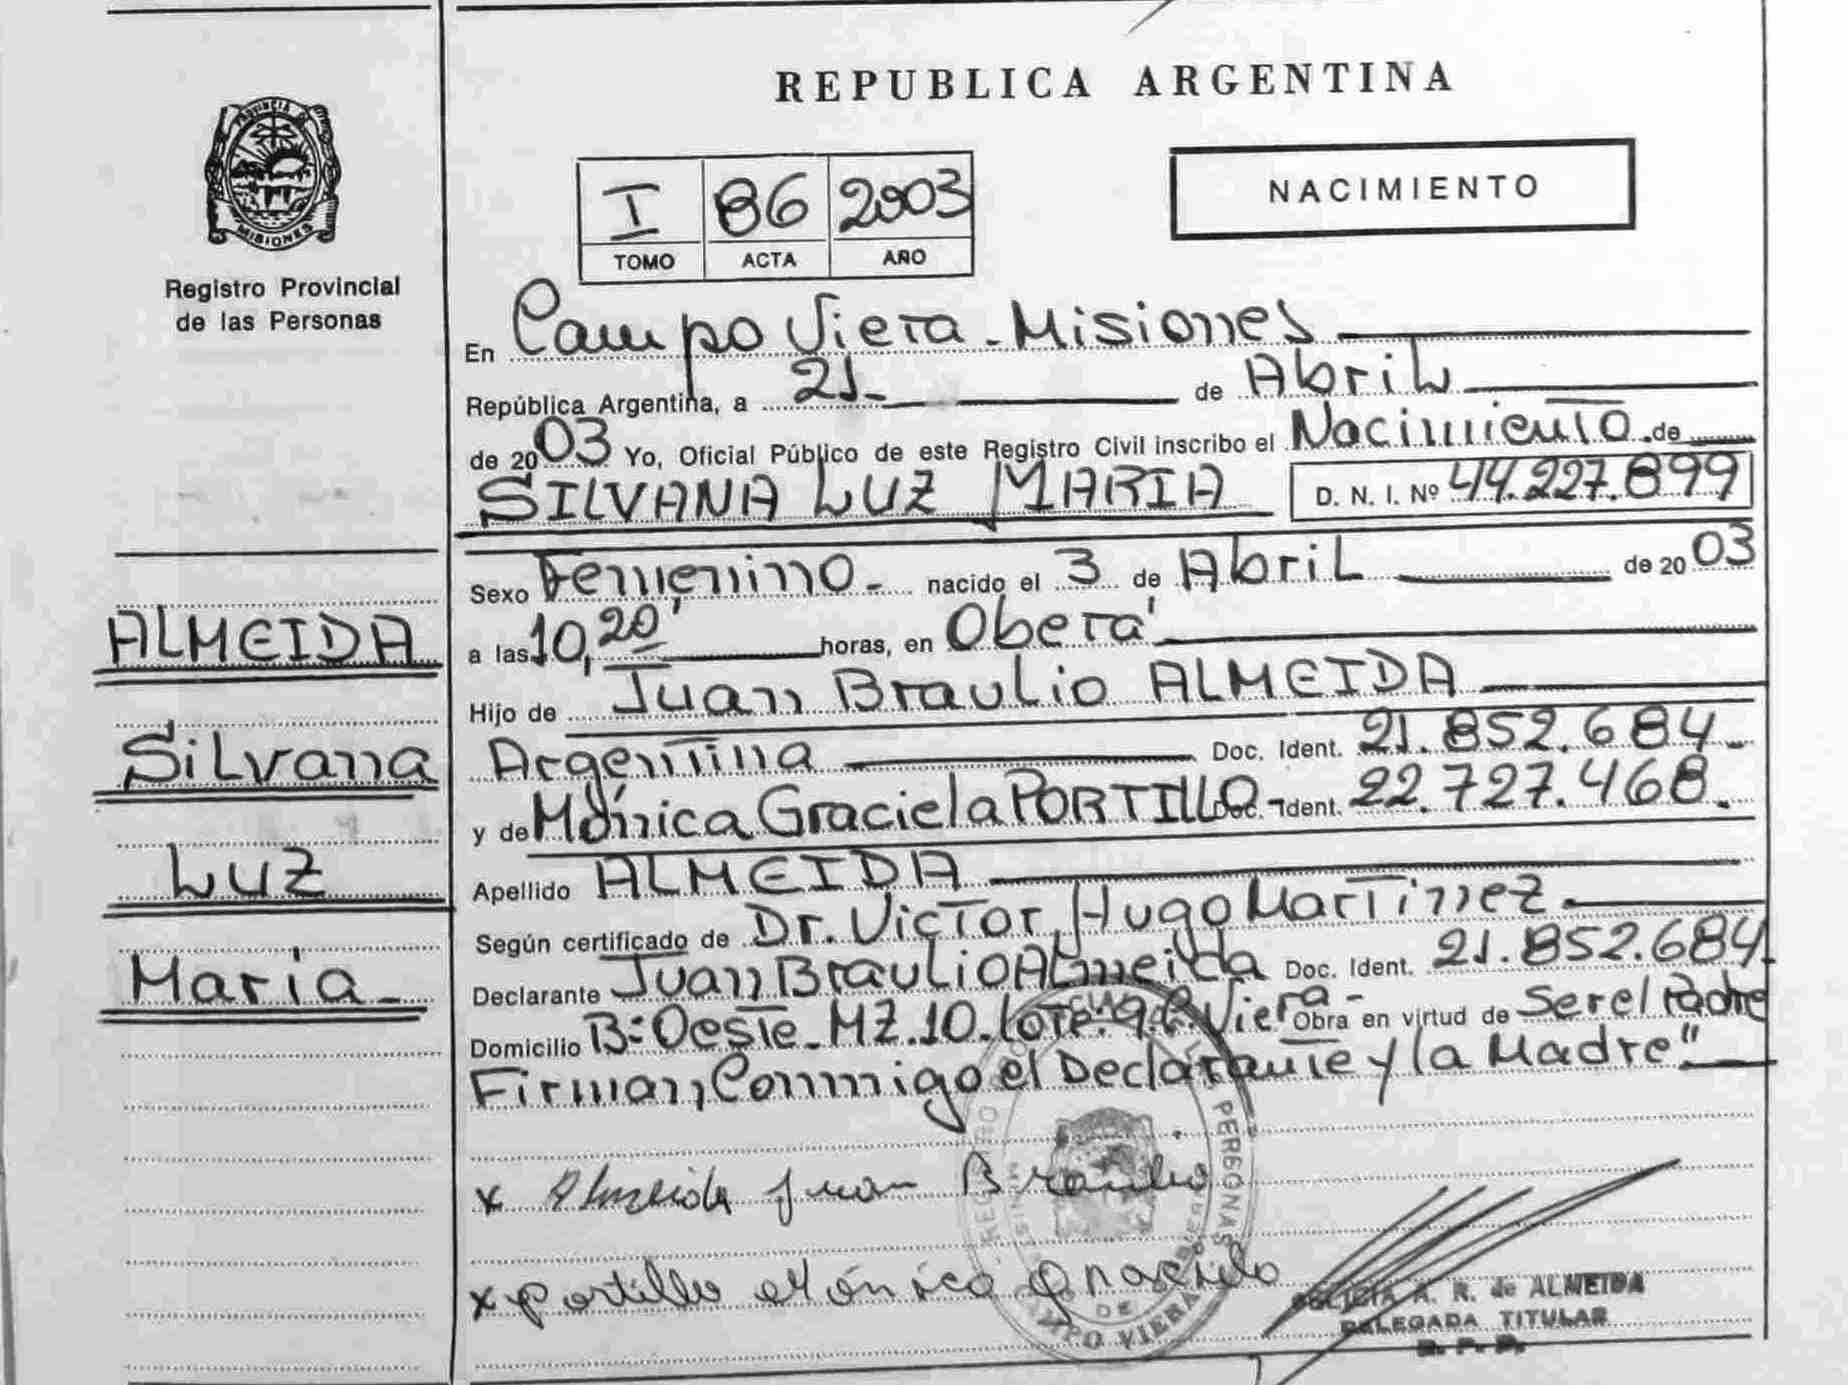 PROVINCIA DE
MISIONES
Registro Provincial
de las Personas
ALMEIDA
Silvana
Luz
Maria
REPUBLICA ARGENTINA
I 86 2003
TOMO ACTA AÑO
NACIMIENTO
En Campo Viera - Misiones
República Argentina, a 21 de Abril
de 2003 Yo, Oficial Público de este Registro Civil inscribo el Nacimiento de
SILVANA LUZ MARIA D. N. I. Nº 44.227.899
Sexo Femenino - nacido el 3 de Abril de 2003
a las 10,20' horas, en Oberá
Hijo de Juan Braulio ALMEIDA
Argentina Doc. Ident. 21.852.684 -
y de Mónica Graciela PORTILLO - Doc. Ident. 22.727.468.
Apellido ALMEIDA
Según certificado de Dr. Victor Hugo Martinez
Declarante Juan Braulio Almeida Doc. Ident. 21.852.684
Domicilio Bº Oeste - MZ. 10. Lote: 9. C. Viera - Obra en virtud de Ser el Padre
Firman, Conmigo el Declarante y la Madre"
x Almeida Juan Braulio
x Portillo Mónica Graciela
REGISTRO PERSONAS
DE
CAMPO VIERA
A. R. de ALMEIDA
DELEGADA TITULAR
R. P. P.